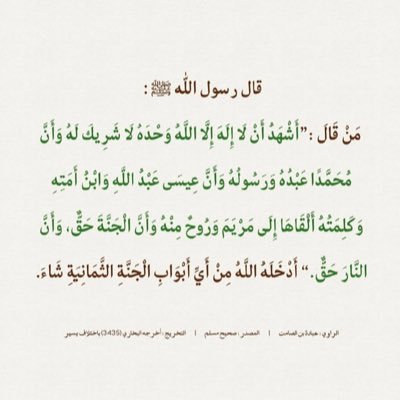 قال رسول الله ﷺ :
مَنْ قَالَ :”أَشْهَدُ أَنْ لَا إِلَهَ إِلَّا اللَّهُ وَحْدَهُ لَا شَرِيكَ لَهُ وَأَنَّ
مُحَمَّدًا عَبْدُهُ وَرَسُولُهُ وَأَنَّ عِيسَى عَبْدُ اللَّهِ وَابْنُ أَمَتِهِ
وَكَلِمَتُهُ أَلْقَاهَا إِلَى مَرْيَمَ وَرُوحٌ مِنْهُ وَأَنَّ الْجَنَّةَ حَقٌّ، وَأَنَّ
النَّارَ حَقٌّ.“ أَدْخَلَهُ اللَّهُ مِنْ أَيِّ أَبْوَابِ الْجَنَّةِ الثَّمَانِيَةِ شَاءَ.
الراوي : عبادة بن الصامت | المصدر : صحيح مسلم | التخريج : أخرجه البخاري (3435) باختلاف يسير